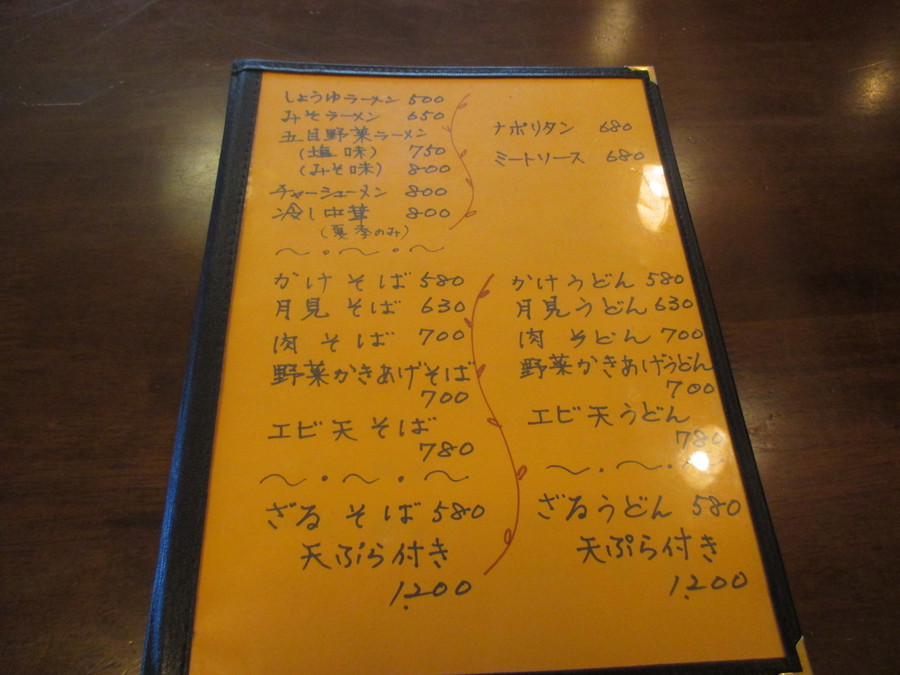 しょうゆラーメン 500
みそラーメン 650
五目野菜ラーメン
(塩味) 750
(みそ味) 800
チャーシューメン 800
冷し中華 800
(夏季のみ)
ナポリタン 680
ミートソース 680
〜・〜・〜
かけそば 580
月見そば 630
肉そば 700
野菜かきあげそば
700
エビ天そば
780
〜・〜・〜
ざるそば 580
天ぷら付き
1,200
かけうどん 580
月見うどん 630
肉うどん 700
野菜かきあげうどん
700
エビ天うどん
780
〜・〜・〜
ざるうどん 580
天ぷら付き
1,200